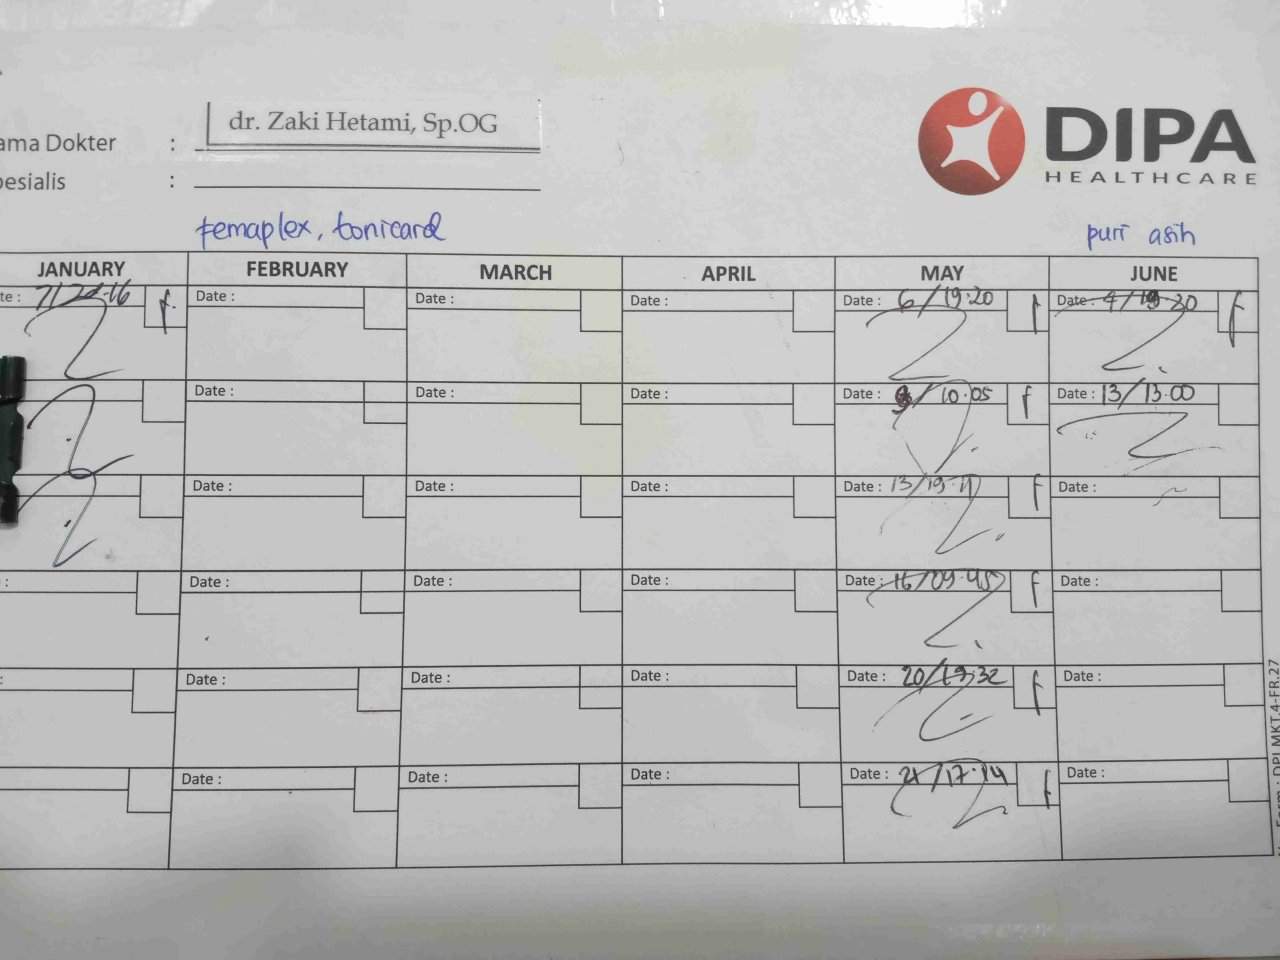 ama Dokter : dr. Zaki Hetami, Sp.OG
pesialis :
DIPA
HEALTHCARE
femaplex, tonicard
puri asih
JANUARY FEBRUARY MARCH APRIL MAY JUNE
te: Date : Date : Date : Date : 6/19:20 f Date : 4/19.30 f
Date : Date : Date : Date : 10.05 f Date : 13/13.00
Date : Date : Date : Date : 13/19. f Date :
: Date : Date : Date : Date : 16/09.45 f Date :
: Date : Date : Date : Date : 20/19:32 f Date :
Date : Date : Date : Date : 21/17.14 f Date :
DPI.MKT.4-FR.27